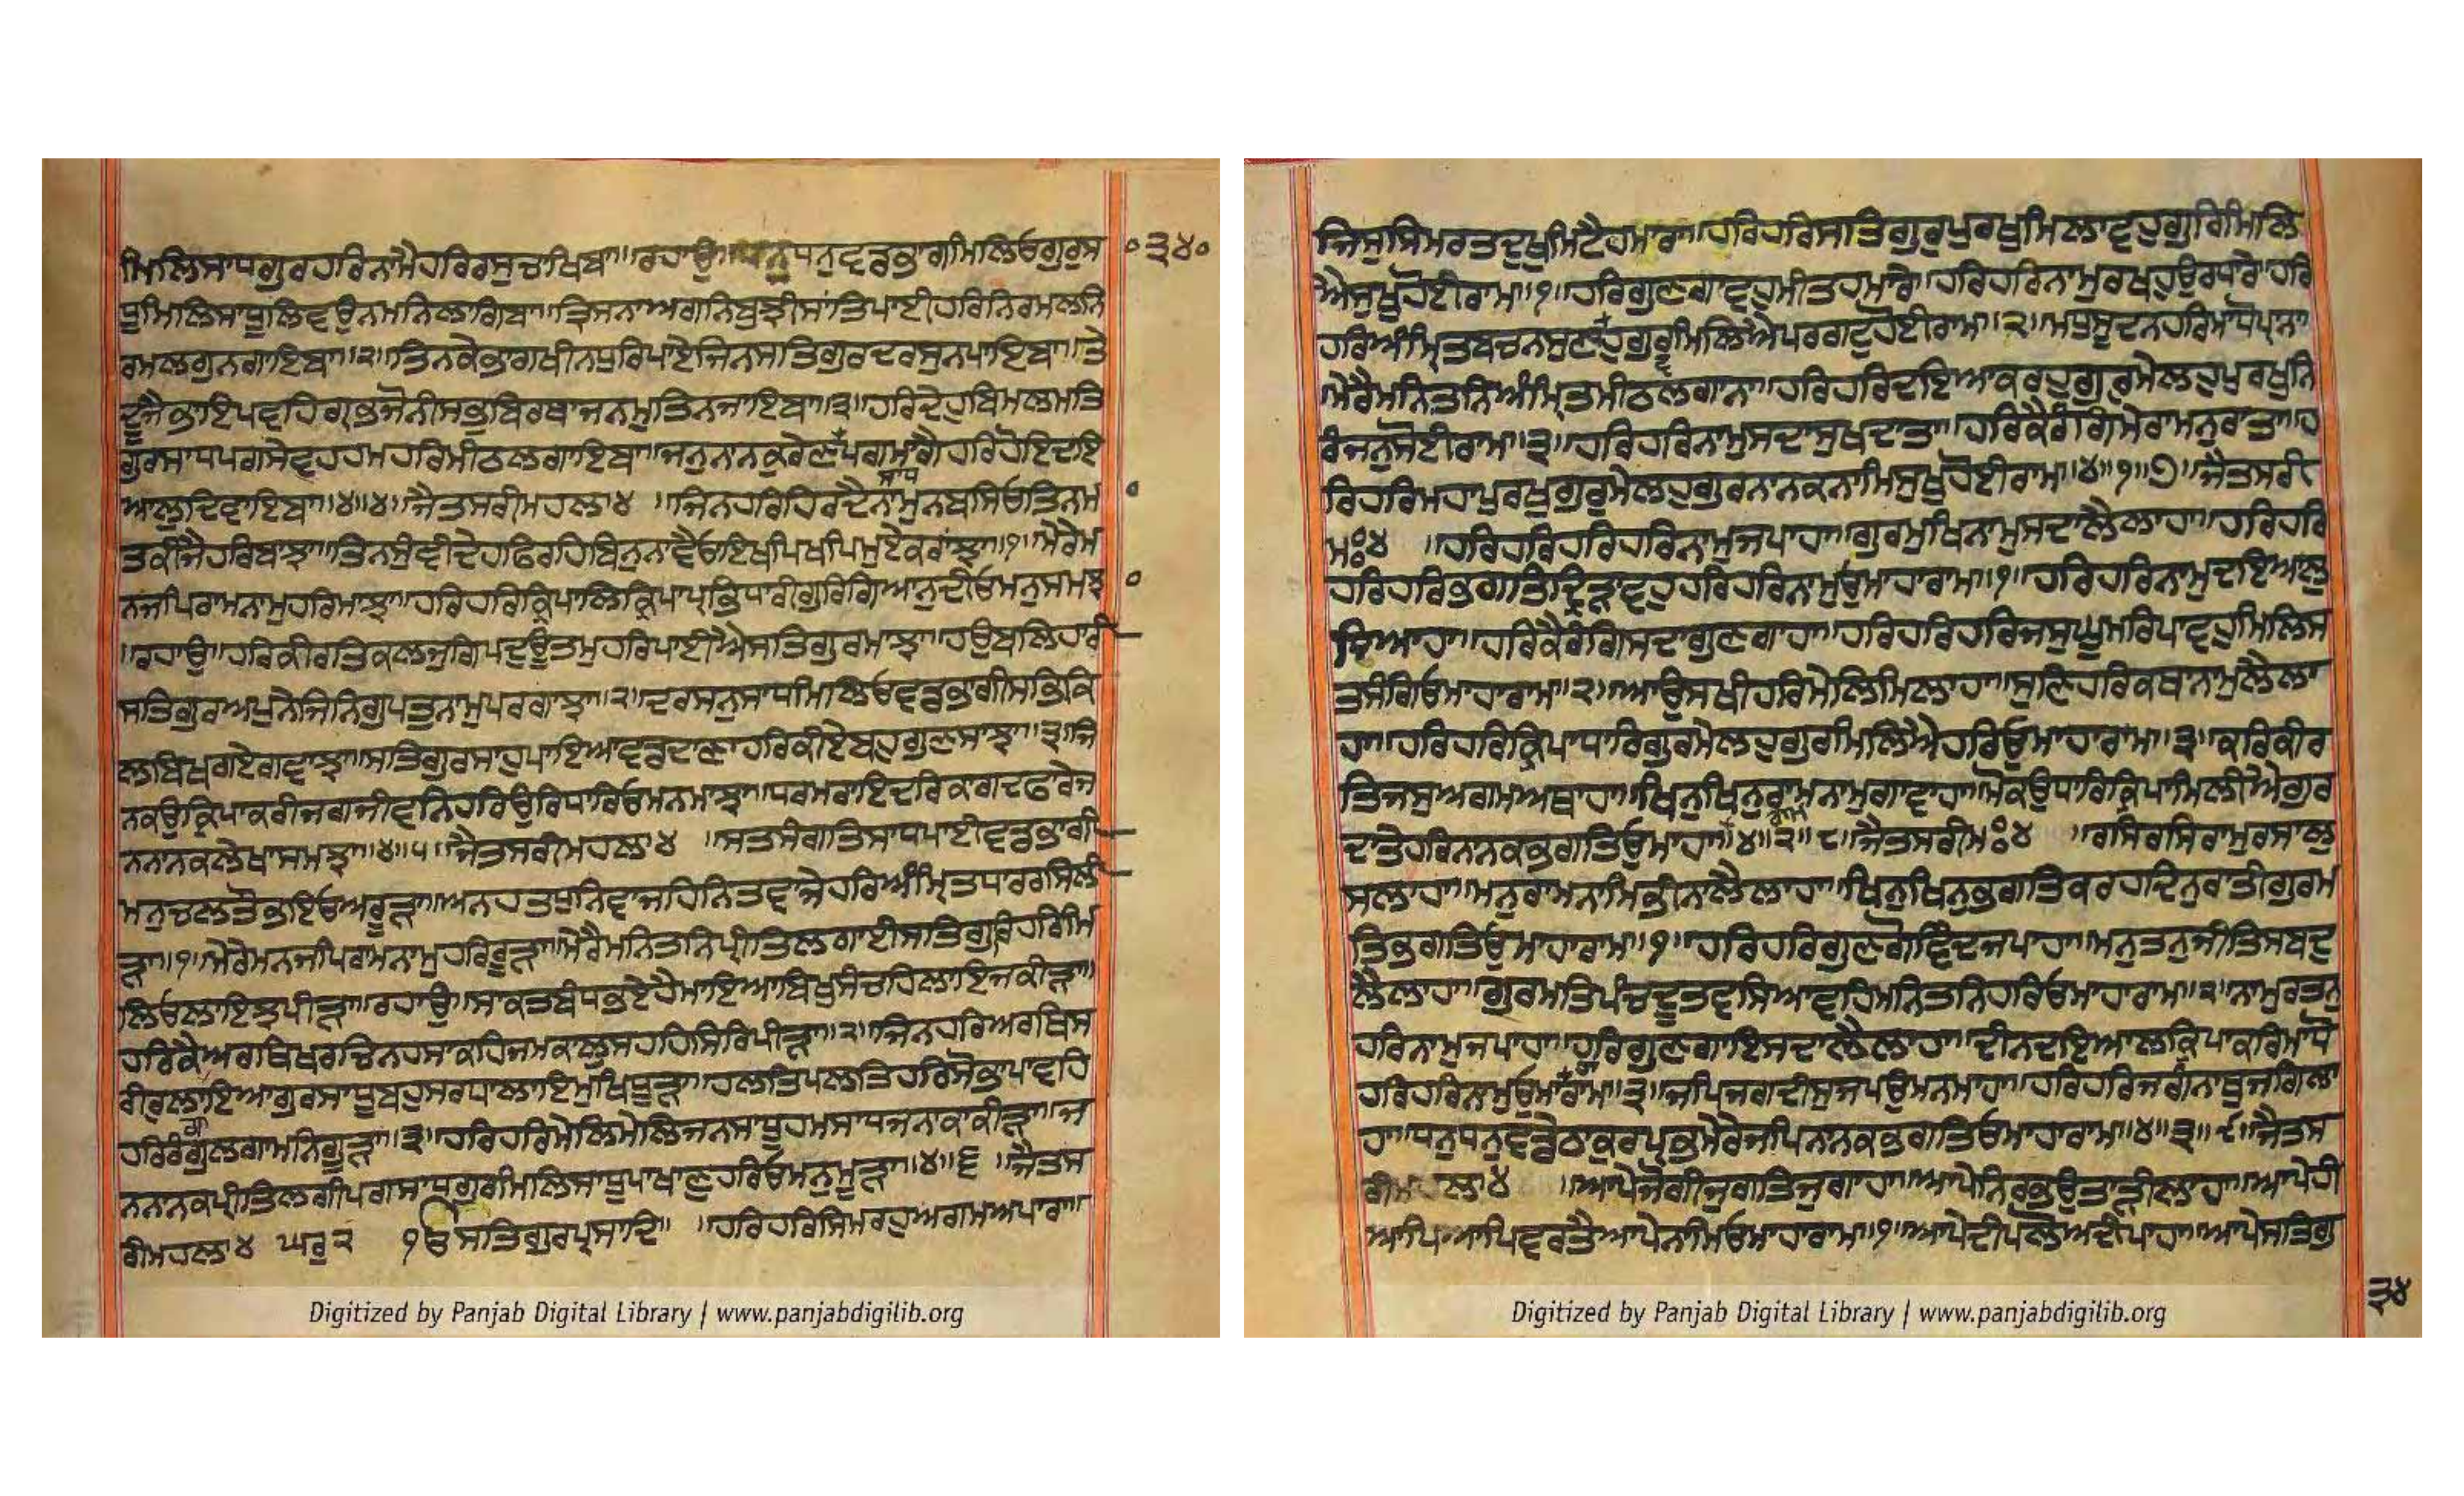 ਮਿਲਿਸਾਧਗੁਰਹਰਿਨਾਮੈਹਰਿਰਸੁਚਾਖਿਬਾ॥ਰਹਾਉ॥ਧਨੁਧਨੁਵਡਭਾਗਮਿਲਿਓਗੁਰੁਸ
ਧੂਮਿਲਿਸਾਧੂਲਿਵਉਨਮਨਿਲਾਗਿਬਾ॥ਤ੍ਰਿਸਨਾਅਗਨਿਬੁਝੀਸਾਂਤਿਪਾਈਹਰਿਨਿਰਮਲਨਿ
ਰਮਲਗੁਨਗਾਇਬਾ॥੨॥ਤਿਨਕੇਭਾਗਖੀਨਧੁਰਿਪਾਏਜਿਨਸਤਿਗੁਰਦਰਸੁਨਪਾਇਬਾ॥ਤੇ
ਦੂਜੈਭਾਇਪਵਹਿਗ੍ਰਭਜੋਨੀਸਭੁਬਿਰਥਾਜਨਮੁਤਿਨਜਾਇਬਾ॥੩॥ਹਰਿਦੇਹੁਬਿਮਲਮਤਿ
ਗੁਰਸਾਧਪਗਸੇਵਹਹਮਹਰਿਮੀਠਲਗਾਇਬਾ॥ਜਨੁਨਾਨਕੁਰੇਣਪਗਸਾਧਮਾਗੈਹਰਿਹੋਇਦਇ
ਆਲੁਦਿਵਾਇਬਾ॥੪॥੪॥ਜੈਤਸਰੀਮਹਲਾ੪ ॥ਜਿਨਹਰਿਹਿਰਦੈਨਾਮੁਨਬਸਿਓਤਿਨਮ
ਤਕੀਜੈਹਰਿਬਾਝਾ॥ਤਿਨਸੁੰਞੀਦੇਹਫਿਰਹਿਬਿਨੁਨਾਵੈਓਇਖਪਿਖਪਿਮੁਏਕਰਾਂਝਾ॥੧॥ਮੇਰੇਮ
ਨਜਪਿਰਾਮਨਾਮੁਹਰਿਮਾਝਾ॥ਹਰਿਹਰਿਕ੍ਰਿਪਾਲਿਕ੍ਰਿਪਾਪ੍ਰਭਿਧਾਰੀਗੁਰਿਗਿਆਨੁਦੀਓਮਨੁਸਮਝ
॥ਰਹਾਉ॥ਹਰਿਕੀਰਤਿਕਲਜੁਗਿਪਦੁਊਤਮੁਹਰਿਪਾਈਐਸਤਿਗੁਰਮਾਝਾ॥ਹਉਬਲਿਹਾਰੀ
ਸਤਿਗੁਰਅਪੁਨੇਜਿਨਿਗੁਪਤੁਨਾਮੁਪਰਗਾਝਾ॥੨॥ਦਰਸਨੁਸਾਧਮਿਲਿਓਵਡਭਾਗੀਸਭਿਕਿ
ਲਬਿਖਗਏਗਵਾਝਾ॥ਸਤਿਗੁਰਸਾਹੁਪਾਇਆਵਡਦਾਣਾਹਰਿਕੀਏਬਹੁਗੁਣਸਾਝਾ॥੩॥ਜਿ
ਨਕਉਕ੍ਰਿਪਾਕਰੀਜਗਜੀਵਨਿਹਰਿਉਰਿਧਾਰਿਓਮਨਮਾਝਾ॥ਧਰਮਰਾਇਦਰਿਕਾਗਦਫਾਰੇਜ
ਨਨਾਨਕਲੇਖਾਸਮਝਾ॥੪॥੫॥ਜੈਤਸਰੀਮਹਲਾ੪ ॥ਸਤਸੰਗਤਿਸਾਧਪਾਈਵਡਭਾਗੀ
ਮਨੁਚਲਤੌਭਇਓਅਰੂੜਾ॥ਅਨਹਤਧੁਨਿਵਾਜਹਿਨਿਤਵਾਜੇਹਰਿਅੰਮ੍ਰਿਤਧਾਰਰਸਿਲੀ
ੜਾ॥੧॥ਮੇਰੇਮਨਜਪਿਰਾਮਨਾਮੁਹਰਿਰੂੜਾ॥ਮੇਰੈਮਨਿਤਨਿਪ੍ਰੀਤਿਲਗਾਈਸਤਿਗੁਰਿਹਰਿਮਿ
ਲਿਓਲਾਇਝਪੀੜਾ॥ਰਹਾਉ॥ਸਾਕਤਬੰਧਭਏਹੈਮਾਇਆਬਿਖੁਸੰਚਹਿਲਾਇਜਕੀੜਾ॥
ਹਰਿਕੈਅਰਥਿਖਰਚਿਨਹਸਾਕਹਿਜਮਕਾਲੁਸਹਹਿਸਿਰਿਪੀੜਾ॥੨॥ਜਿਨਹਰਿਅਰਥਿਸ
ਰੀਰੁਲਾਇਆਗੁਰਸਾਧੂਬਹੁਸਰਧਾਲਾਇਮੁਖਿਧੂੜਾ॥ਹਲਤਿਪਲਤਿਹਰਿਸੋਭਾਪਾਵਹਿ
ਹਰਿਰੰਗੁਲਗਾਮਨਿਗੂੜਾ॥੩॥ਹਰਿਹਰਿਮੇਲਿਮੇਲਿਜਨਸਾਧੂਹਮਸਾਧਜਨਾਕਾਕੀੜਾ॥ਜ
ਨਨਾਨਕਪ੍ਰੀਤਿਲਗੀਪਗਸਾਧਗੁਰਮਿਲਿਸਾਧੂਪਾਖਾਣੁਹਰਿਓਮਨੁਮੂੜਾ॥੪॥੬ ॥ਜੈਤਸ
ਰੀਮਹਲਾ੪ ਘਰੁ੨ ੴਸਤਿਗੁਰਪ੍ਰਸਾਦਿ॥ ॥ਹਰਿਹਰਿਸਿਮਰਹੁਅਗਮਅਪਾਰਾ॥
੦੩੪੦
Digitized by Panjab Digital Library | www.panjabdigilib.org
ਜਿਸੁਸਿਮਰਤਦੁਖੁਮਿਟੈਹਮਾਰਾ॥ਹਰਿਹਰਿਸਤਿਗੁਰੁਪੁਰਖੁਮਿਲਾਵਹੁਗੁਰਿਮਿਲਿ
ਐਸੁਖੁਹੋਈਰਾਮ॥੧॥ਹਰਿਗੁਣਗਾਵਹੁਮੀਤਹਮਾਰੇ॥ਹਰਿਹਰਿਨਾਮੁਰਖਹੁਉਰਧਾਰੇ॥ਹਰਿ
ਹਰਿਅੰਮ੍ਰਿਤਬਚਨਸੁਣਾਵਹੁਗੁਰਮਿਲਿਐਪਰਗਟੁਹੋਈਰਾਮ॥੨॥ਮਧੁਸੂਦਨਹਰਿਮਾਧੋਪ੍ਰਾਨਾ
ਮੇਰੈਮਨਿਤਨਿਅੰਮ੍ਰਿਤਮੀਠਲਗਾਨਾ॥ਹਰਿਹਰਿਦਇਆਕਰਹੁਗੁਰੁਮੇਲਹੁਪੁਰਖੁਨਿ
ਰੰਜਨੁਸੋਈਰਾਮ॥੩॥ਹਰਿਹਰਿਨਾਮੁਸਦਾਸੁਖਦਾਤਾ॥ਹਰਿਕੈਰੰਗਿਮੇਰਾਮਨੁਰਾਤਾ॥ਹ
ਰਿਹਰਿਮਹਾਪੁਰਖੁਗੁਰੁਮੇਲਹੁਗੁਰਨਾਨਕਨਾਮਿਸੁਖੁਹੋਈਰਾਮ॥੪॥੧॥੭॥ਜੈਤਸਰੀ
ਮਃ੪ ॥ਹਰਿਹਰਿਹਰਿਹਰਿਨਾਮੁਜਪਾਹਾ॥ਗੁਰਮੁਖਿਨਾਮੁਸਦਾਲੈਲਾਹਾ॥ਹਰਿਹਰਿ
ਹਰਿਹਰਿਭਗਤਿਦ੍ਰਿੜਾਵਹੁਹਰਿਹਰਿਨਾਮੁਓੁਮਾਹਾਰਾਮ॥੧॥ਹਰਿਹਰਿਨਾਮੁਦਇਆਲੁ
ਧਿਆਹਾ॥ਹਰਿਕੈਰੰਗਿਸਦਾਗੁਣਗਾਹਾ॥ਹਰਿਹਰਿਹਰਿਜਸੁਘੂਮਰਿਪਾਵਹੁਮਿਲਿਸ
ਤਸੰਗਿਓਮਾਹਾਰਾਮ॥੨॥ਆਉਸਖੀਹਰਿਮੇਲਿਮਿਲਾਹਾ॥ਸੁਣਿਹਰਿਕਥਾਨਾਮੁਲੈਲਾ
ਹਾ॥ਹਰਿਹਰਿਕ੍ਰਿਪਾਧਾਰਿਗੁਰਮੇਲਹੁਗੁਰਮਿਲਿਐਹਰਿਓੁਮਾਹਾਰਾਮ॥੩॥ਕਰਿਕੀਰ
ਤਿਜਸੁਅਗਮਅਥਾਹਾ॥ਖਿਨੁਖਿਨੁਰਾਮਨਾਮੁਗਾਵਾਹਾ॥ਮੋਕਉਧਾਰਿਕ੍ਰਿਪਾਮਿਲੀਐਗੁਰ
ਦਾਤੇਹਰਿਨਾਨਕਭਗਤਿਓੁਮਾਹਾਰਾਮ॥੪॥੨॥੮॥ਜੈਤਸਰੀਮਃ੪ ॥ਰਸਿਰਸਿਰਾਮੁਰਸਾਲੁ
ਸਲਾਹਾ॥ਮਨੁਰਾਮਨਾਮਿਭੀਨਾਲੈਲਾਹਾ॥ਖਿਨੁਖਿਨੁਭਗਤਿਕਰਹਦਿਨੁਰਾਤੀਗੁਰਮ
ਤਿਭਗਤਿਓੁਮਾਹਾਰਾਮ॥੧॥ਹਰਿਹਰਿਗੁਣਗੋਵਿੰਦਜਪਾਹਾ॥ਮਨੁਤਨੁਜੀਤਿਸਬਦੁ
ਲੈਲਾਹਾ॥ਗੁਰਮਤਿਪੰਚਦੂਤਵਸਿਆਵਹਿਮਨਿਤਨਿਹਰਿਓਮਾਹਾਰਾਮ॥੨॥ਨਾਮੁਰਤਨੁ
ਹਰਿਨਾਮੁਜਪਾਹਾ॥ਹਰਿਗੁਣਗਾਇਸਦਾਲੈਲਾਹਾ॥ਦੀਨਦਇਆਲਕ੍ਰਿਪਾਕਰਿਮਾਧੋ
ਹਰਿਹਰਿਨਾਮੁਓੁਮਾਹਾਰਾਮ॥੩॥ਜਪਿਜਗਦੀਸੁਜਪਉਮਨਮਾਹਾ॥ਹਰਿਹਰਿਜਗੰਨਾਥੁਜਗਿਲਾ
ਹਾ॥ਧਨੁਧਨੁਵਡੇਠਾਕੁਰਪ੍ਰਭਮੇਰੇਜਪਿਨਾਨਕਭਗਤਿਓਮਾਹਾਰਾਮ॥੪॥੩॥੯॥ਜੈਤਸ
ਰੀਮਹਲਾ੪ ॥ਆਪੇਜੋਗੀਜੁਗਤਿਜੁਗਾਹਾ॥ਆਪੇਨਿਰਭਉਤਾੜੀਲਾਹਾ॥ਆਪੇਹੀ
ਆਪਿਆਪਿਵਰਤੈਆਪੇਨਾਮਿਓਮਾਹਾਰਾਮ॥੧॥ਆਪੇਦੀਪਲੋਅਦੀਪਾਹਾ॥ਆਪੇਸਤਿਗੁ
੩੪
Digitized by Panjab Digital Library | www.panjabdigilib.org